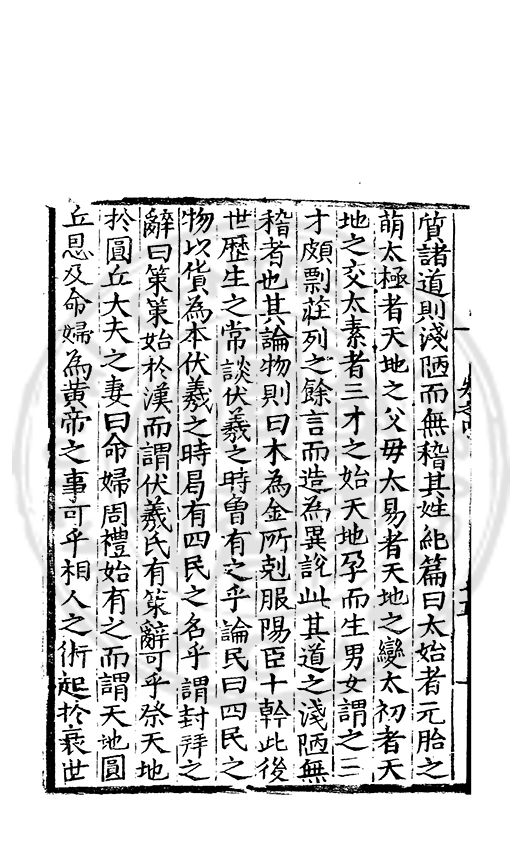 質諸道則淺陋而無稽其姓紀篇曰太始者元胎之
萌太極者天地之父母太易者天地之變太初者天
地之交太素者三才之始天地孕而生男女謂之三
才頗剽莊列之餘言而造為異說此其道之淺陋無
稽者也其論物則曰木為金所剋服陽臣十幹此後
世歷生之常談伏羲之時曾有之乎論民曰四民之
物以貨為本伏羲之時曷有四民之名乎謂封拜之
辭曰策策始於漢而謂伏羲氏有策辭可乎祭天地
於圓丘大夫之妻曰命婦周禮始有之而謂天地圓
丘恩及命婦為黃帝之事可乎相人之術起於衰世